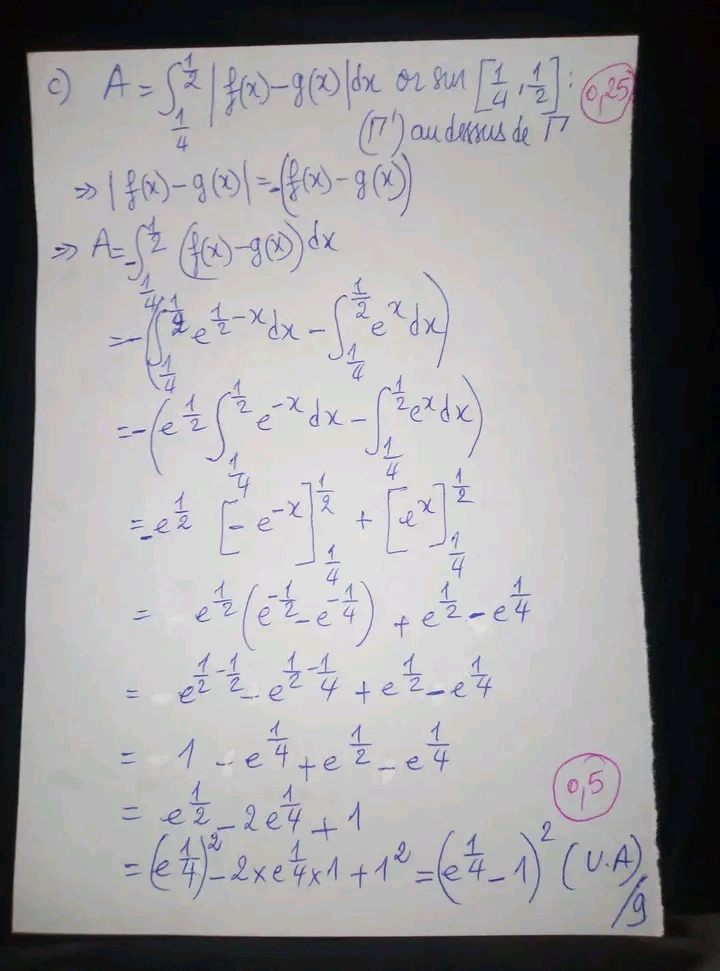 c) A = ∫_{1/4}^{1/2} |f(x) - g(x)| dx or sur [1/4, 1/2] : 0,25
(Γ') au dessus de Γ
⇒ |f(x) - g(x)| = -(f(x) - g(x))
⇒ A = -∫_{1/4}^{1/2} (f(x) - g(x)) dx
= -(∫_{1/4}^{1/2} e^{1/2 - x} dx - ∫_{1/4}^{1/2} e^x dx)
= -(e^{1/2} ∫_{1/4}^{1/2} e^{-x} dx - ∫_{1/4}^{1/2} e^x dx)
= -e^{1/2} [-e^{-x}]_{1/4}^{1/2} + [e^x]_{1/4}^{1/2}
= e^{1/2} (e^{-1/2} - e^{-1/4}) + e^{1/2} - e^{1/4}
= e^{1/2 - 1/2} - e^{1/2 - 1/4} + e^{1/2} - e^{1/4}
= 1 - e^{1/4} + e^{1/2} - e^{1/4}
= e^{1/2} - 2e^{1/4} + 1 0,5
= (e^{1/4})^2 - 2 × e^{1/4} × 1 + 1^2 = (e^{1/4} - 1)^2 (U.A)
/9